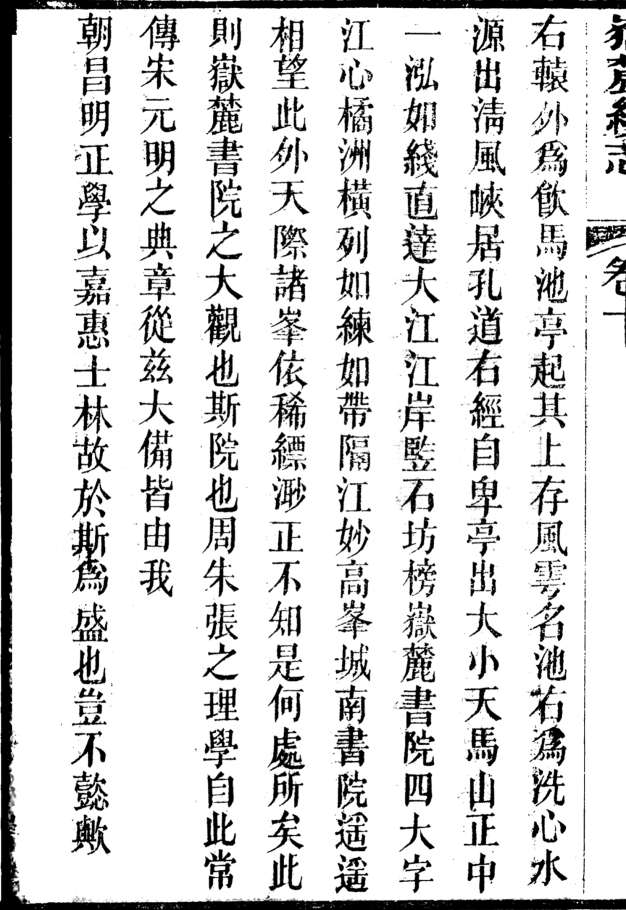 嶽麓續志
卷十
右轅外爲飮馬池亭起其上存風雩名池右爲洗心水
源出淸風峽居孔道右經自卑亭出大小天馬山正中
一泓如綫直達大江江岸豎石坊榜嶽麓書院四大字
江心橘洲橫列如練如帶隔江妙高峯城南書院遥遥
相望此外天際諸峯依稀縹渺正不知是何處所矣此
則嶽麓書院之大觀也斯院也周朱張之理學自此常
傳宋元明之典章從茲大備皆由我
朝昌明正學以嘉惠士林故於斯爲盛也豈不懿歟